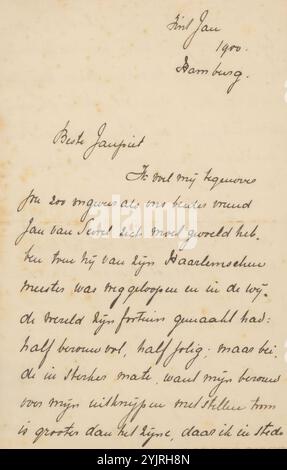 Sint Jan
1900.
Hamburg.
Beste Janpiet
Ik voel mij tegenover
jou zoo ongeveer als ons beider vriend
Jan van Scorel zich moet gevoeld heb-
ben toen hij van zijn Haarlemschen
meester was weggeloopen en in de wij-
de wereld zijn fortuin gemaakt had:
half berouwvol, half jolig; maar bei-
de in sterker mate, want mijn berouw
over mijn uitknijpen met stillen trom
is grooter dan het zijne, daar ik in stede
alamy
Image ID: 2YJRH8N
www.alamy.com